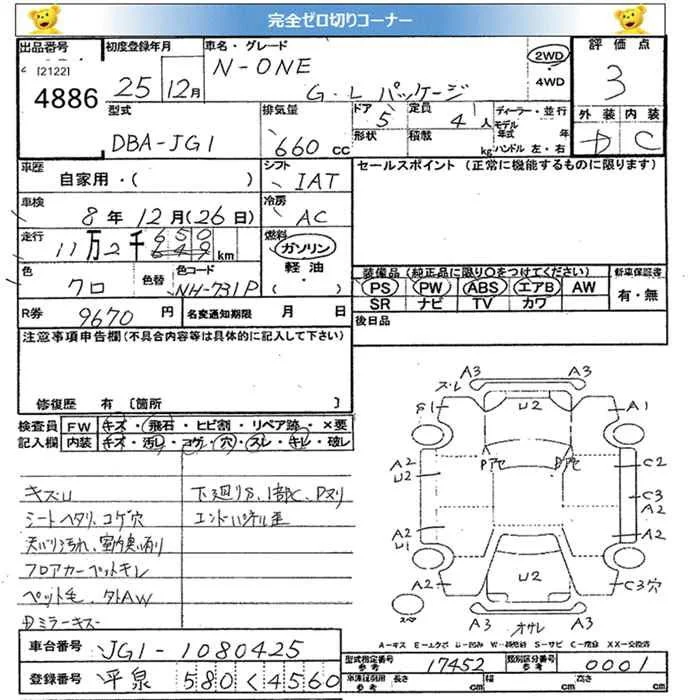 完全ゼロ切りコーナー
出品番号
[2122]
4886
初度登録年月
25 12月
車名・グレード
N-ONE
G・L パッケージ
2WD
・
4WD
評価点
3
外装 内装
D C
型式
DBA-JG1
排気量
660 cc
ドア
5
定員
4人
形状
積載
kg
ディーラー・並行
モデル
年式 年
ハンドル 左・右
車歴
自家用・( )
シフト
IAT
セールスポイント (正常に機能するものに限ります)
車検
8年 12月(26日)
冷房
AC
走行
11万2千650
649 km
燃料
ガソリン
・
軽油
( )
色
クロ
色替
色コード
NH-731P
装備品(純正品に限り○をつけてください)
PS PW ABS エアB AW
SR ナビ TV カワ
新車保証書
有・無
R券
9670円
名変通知期限 月 日
後日品
注意事項申告欄(不具合内容等は具体的に記入して下さい)
修復歴 有 [箇所 ]
検査員
記入欄
FW キズ・飛石・ヒビ割・リペア跡・×要
内装 キズ・汚れ・コゲ・穴・スレ・キレ・破レ
キズU
シートヘタリ、コゲ穴
天バリ汚れ、室内臭い有り
フロアカーペットキレ
ペット毛、外AW
ミラーキズ
下廻りS、1部C、Pヌリ
エンドパネル歪
A3 A3
スレ
S1 U2 A1
Pアセ Pアセ
A2
U2
C2
C3
A2
A2
U1
A2
A2 U2 C3穴
スペア
A3 A3
オサレ
A-キズ E-エクボ U-凹み W-補修跡 S-サビ C-腐食 XX-交換済
車台番号
JG1-1080425
登録番号
平泉 580 く 4560
型式指定番号
参考
17452
類別区分番号
参考
0001
車庫証明用
参考
長さ cm 幅 cm 高さ cm